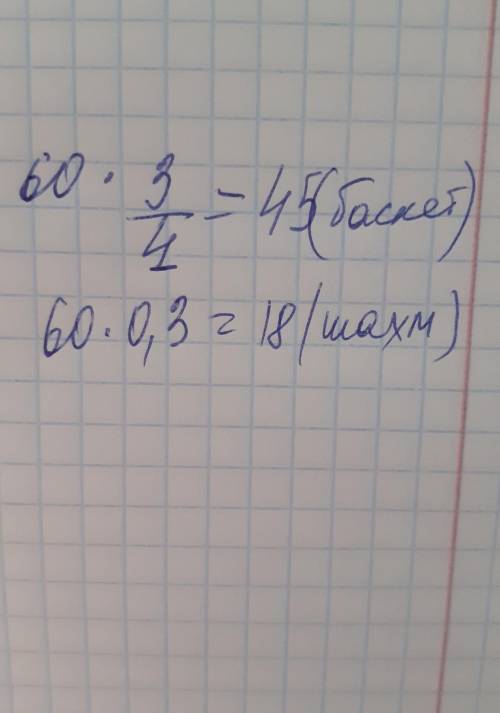 60 · 3/4 = 45 (баскет)
60 · 0,3 = 18 (шахм)